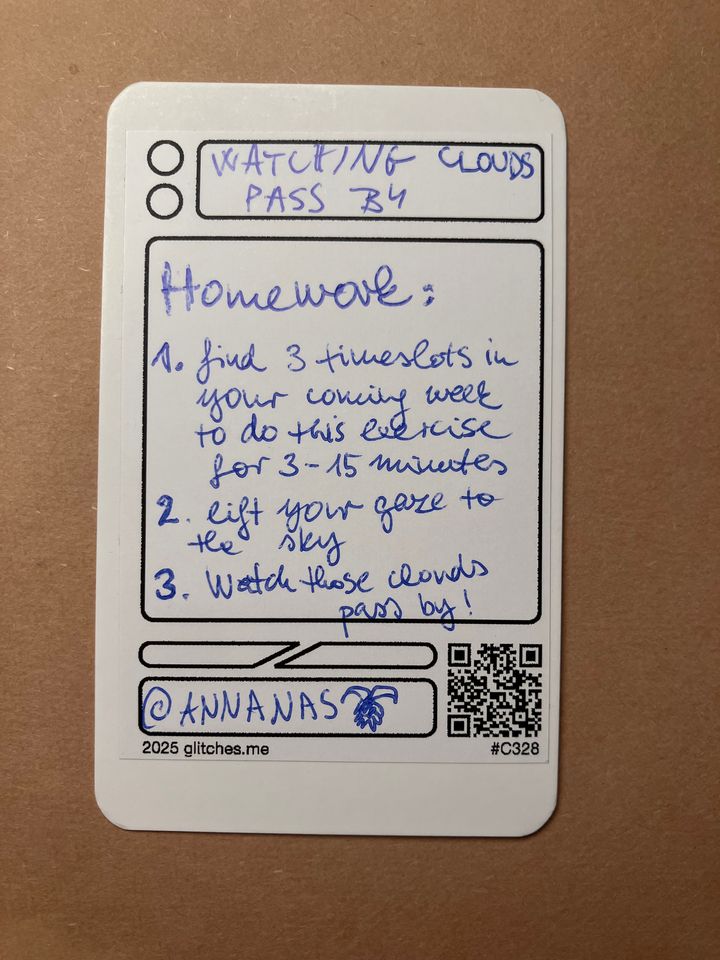 WATCHING CLOUDS
PASS BY
Homework:
1. find 3 timeslots in
your coming week
to do this exercise
for 3-15 minutes
2. lift your gaze to
the sky
3. Watch those clouds
pass by!
@ANNANAS
2025 glitches.me
#C328